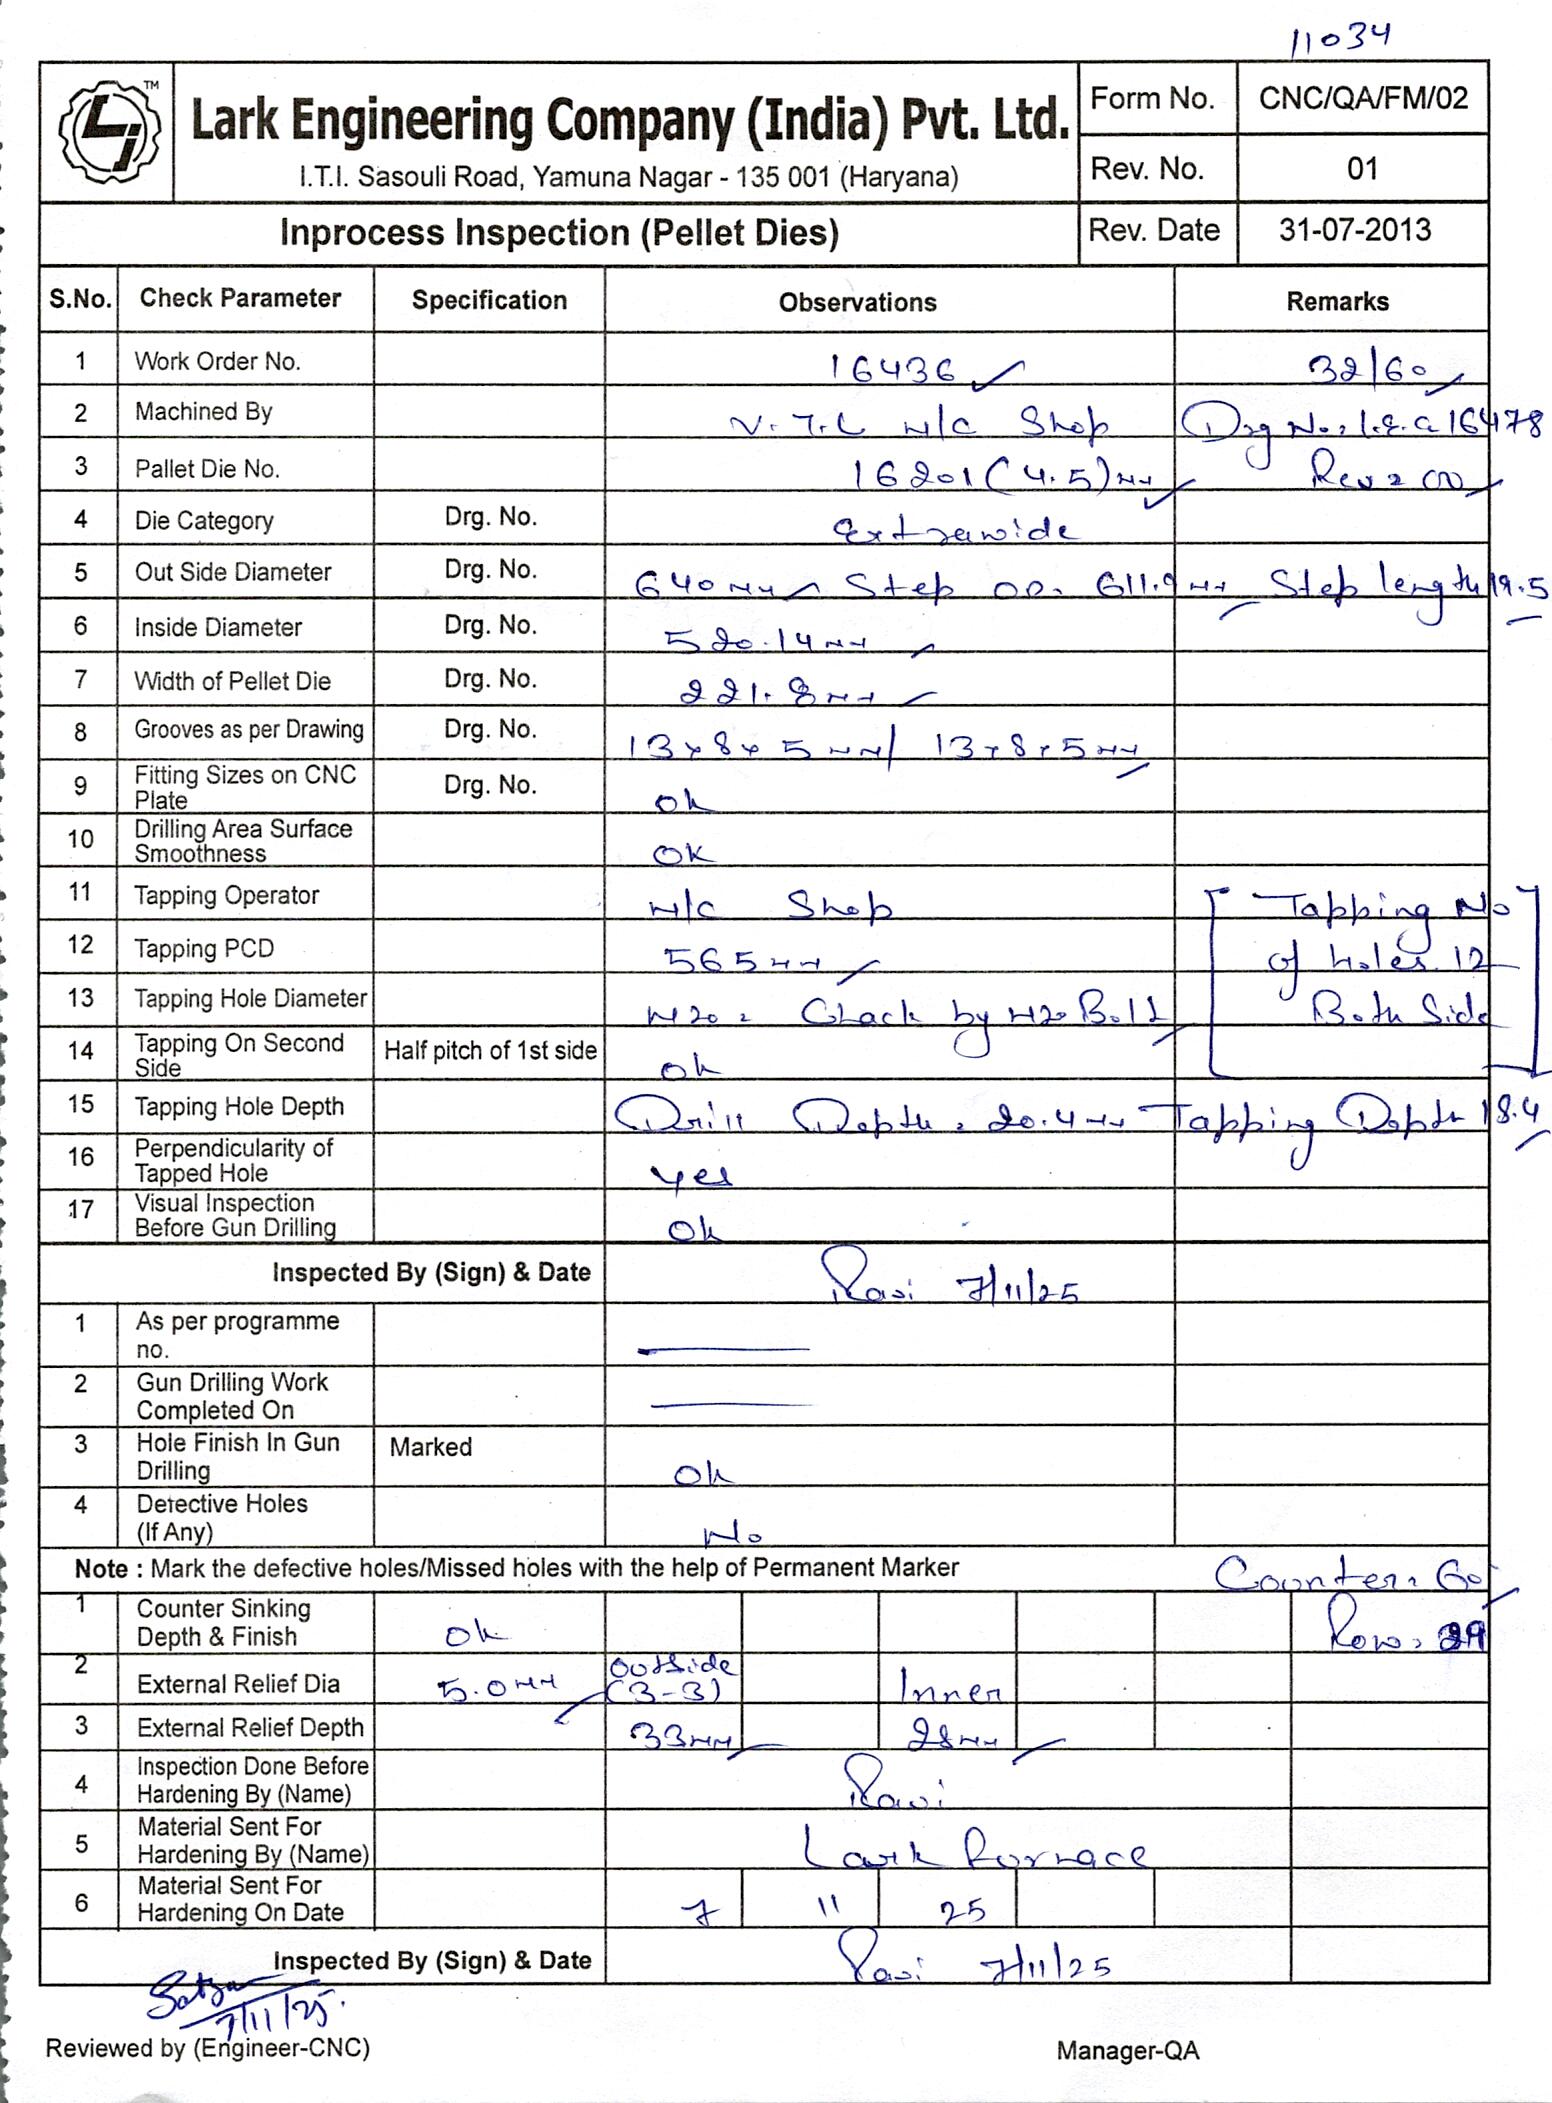 11034
Lark Engineering Company (India) Pvt. Ltd.
I.T.I. Sasouli Road, Yamuna Nagar - 135 001 (Haryana)
Form No. CNC/QA/FM/02
Rev. No. 01
Inprocess Inspection (Pellet Dies) Rev. Date 31-07-2013
S.No. Check Parameter Specification Observations Remarks
1 Work Order No. 16436 32/60
2 Machined By V.T.L M/C Shop Drg No. 16478
3 Pallet Die No. 16201 (4.5) mm Rev = 00
4 Die Category Drg. No. Extrawide
5 Out Side Diameter Drg. No. 640 mm Step OD. 611.9 mm Step length 19.5
6 Inside Diameter Drg. No. 520.14 mm
7 Width of Pellet Die Drg. No. 221.8 mm
8 Grooves as per Drawing Drg. No. 13x8x5 mm/ 13x8x5 mm
9 Fitting Sizes on CNC Plate Drg. No. Ok
10 Drilling Area Surface Smoothness OK
11 Tapping Operator M/C Shop Tapping No
12 Tapping PCD 565 mm of holes 12
13 Tapping Hole Diameter M20 = Chack by M20 Bolt Both Side
14 Tapping On Second Side Half pitch of 1st side Ok
15 Tapping Hole Depth Drill Depth = 20.4 mm Tapping Depth 18.4
16 Perpendicularity of Tapped Hole Yes
17 Visual Inspection Before Gun Drilling Ok
Inspected By (Sign) & Date Ravi 7/11/25
1 As per programme no.
2 Gun Drilling Work Completed On
3 Hole Finish In Gun Drilling Marked Ok
4 Detective Holes (If Any) No
Note : Mark the defective holes/Missed holes with the help of Permanent Marker Counter = 60
1 Counter Sinking Depth & Finish Ok Row = 29
2 External Relief Dia 5.0 mm Outside (3-3) Inner
3 External Relief Depth 33 mm 28 mm
4 Inspection Done Before Hardening By (Name) Ravi
5 Material Sent For Hardening By (Name) Lark Furnace
6 Material Sent For Hardening On Date 7 11 25
Inspected By (Sign) & Date Ravi 7/11/25
7/11/25.
Reviewed by (Engineer-CNC) Manager-QA